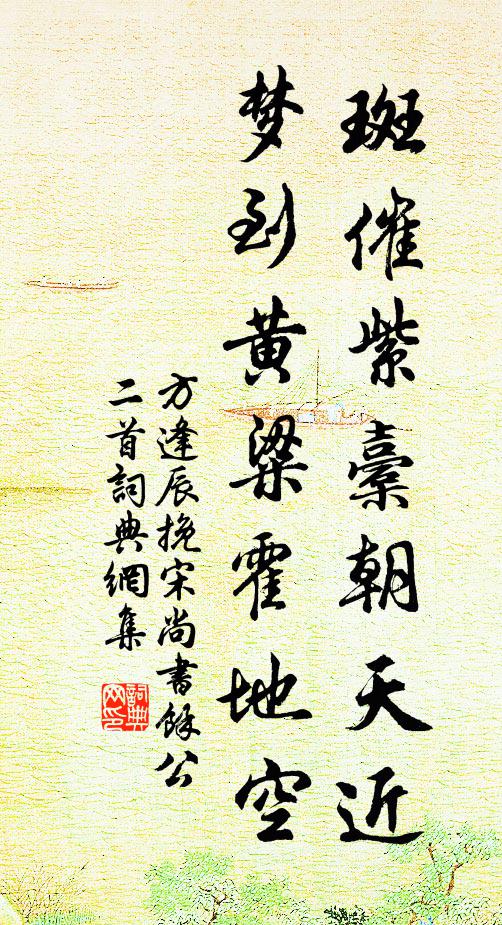 斑催紫橐朝天近
梦到黄粱霍地空
方逢辰挽宋尚书馀公
二首詞典網集
詞典网印